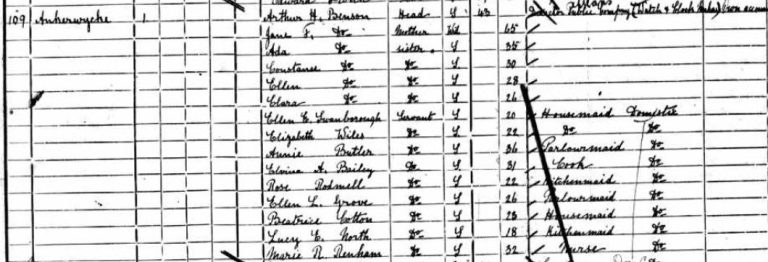 109 Ankerwycke 1 Arthur H. Benson Head S 43 Director Public Company (Watch & Clock Maker) own account
Jane F. Do Mother Wd 65
Ada Do sister S 35
Constance Do Do S 30
Ellen Do Do S 28
Clara Do Do S 26
Ellen E. Swanborough Servant S 20 Housemaid Domestic
Elizabeth Wiles Do S 22 Do Do
Annie Butler Do S 36 Parlourmaid Do
Elvina A. Bailey Do S 31 Cook Do
Rose Rodmell Do S 22 Kitchenmaid Do
Ellen L. Grove Do S 26 Parlourmaid Do
Beatrice Cotton Do S 23 Housemaid Do
Lucy E. North Do S 18 Kitchenmaid Do
Marie R. Renham Do S 32 Nurse Do